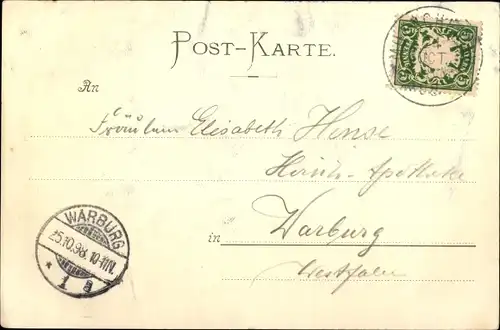 POST-KARTE.
An
Fräulein Elisabeth Hense
Hirsch-Apotheke
in Warburg
Westfalen
WARBURG
25.10.98.10-11N.
* 1 a
5 5